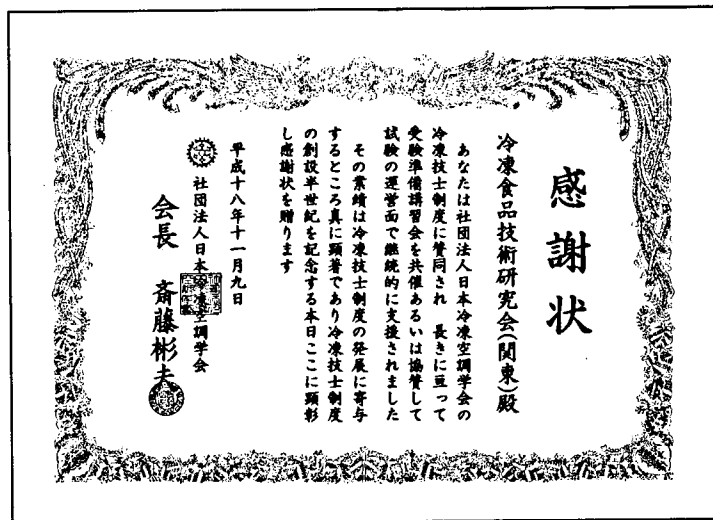 感謝状
冷凍食品技術研究会(関東)殿
あなたは社団法人日本冷凍空調学会の
冷凍技士制度に賛同され 長きに亘って
受験準備講習会を共催あるいは協賛して
試験の運営面で継続的に支援されました
その業績は冷凍技士制度の発展に寄与
するところ真に顕著であり冷凍技士制度
の創設半世紀を記念する本日ここに顕彰
し感謝状を贈ります
平成十八年十一月九日
社団法人日本冷凍空調学会
会長 斎藤彬夫